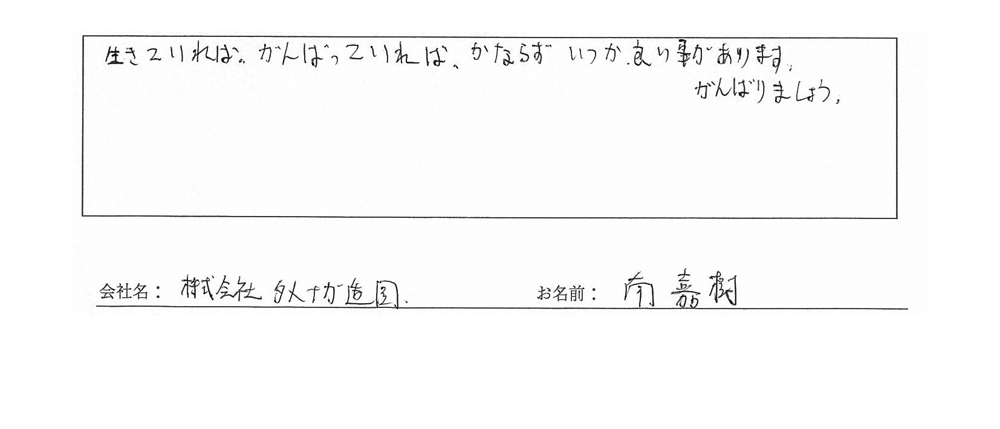 生きていれば。がんばっていれば、かならずいつか良い事があります。
がんばりましょう。
会社名：株式会社タメナガ造園 お名前：南 嘉樹